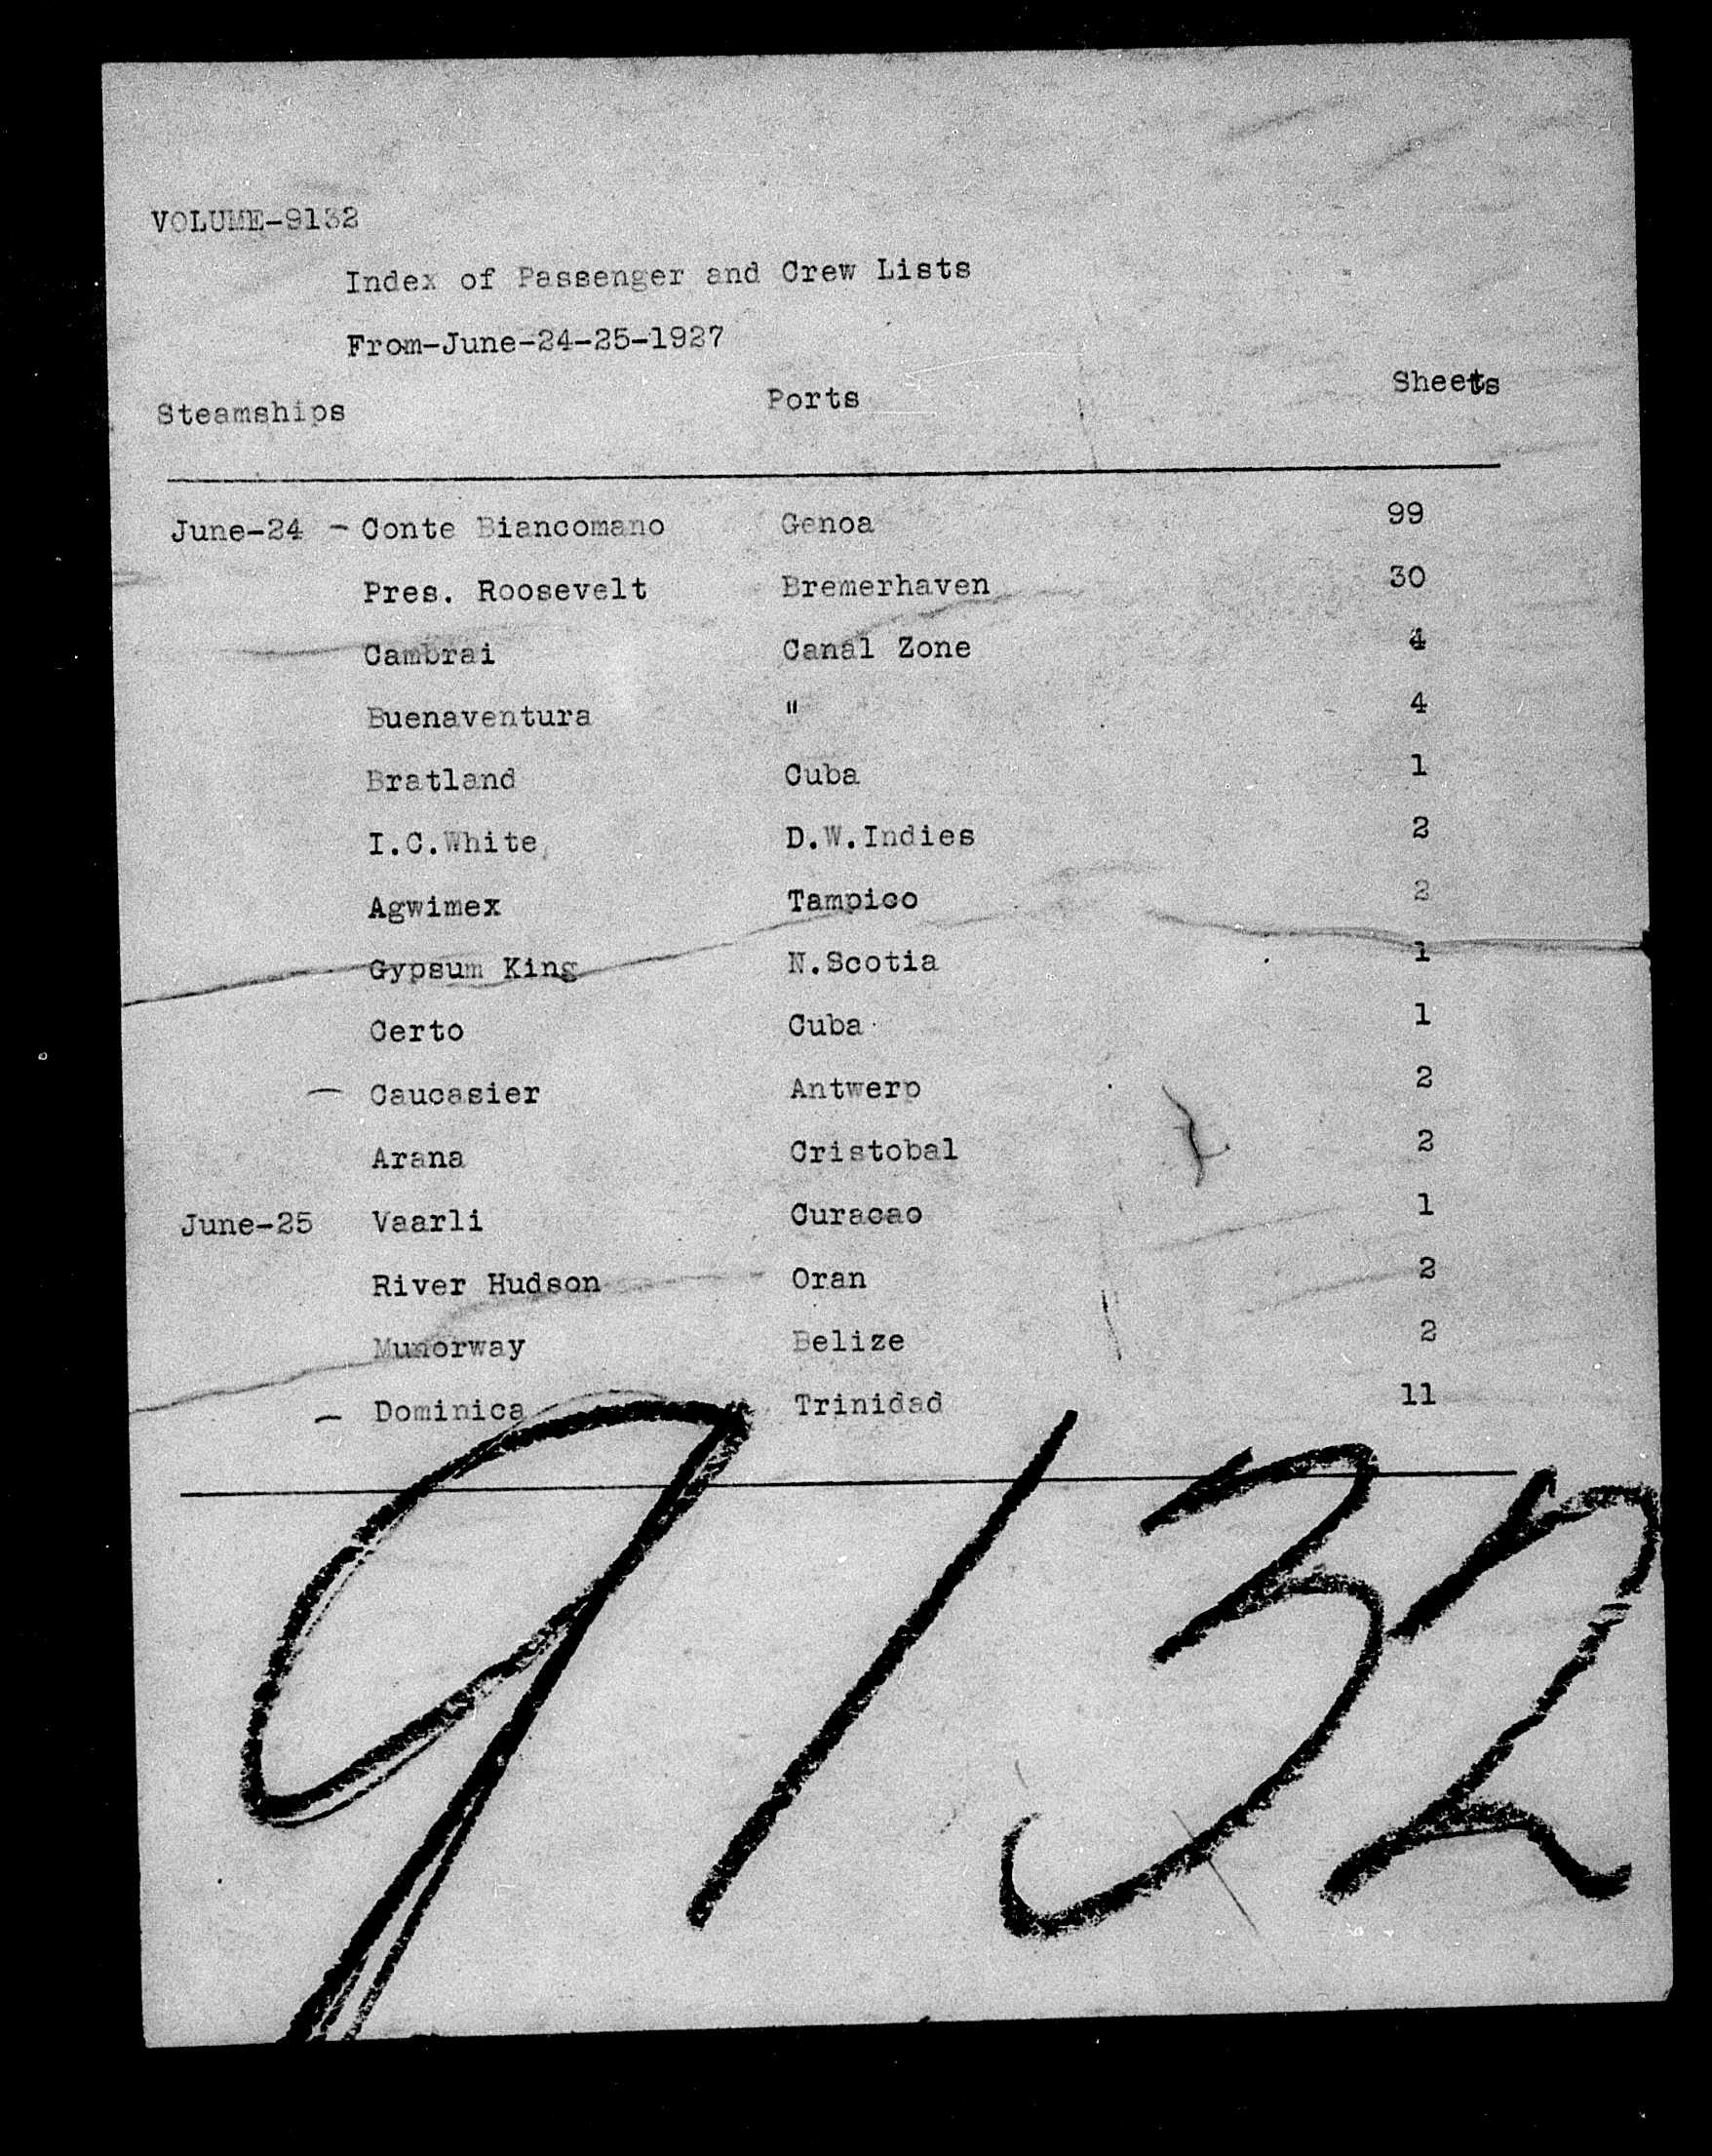 VOLUME-9132
Index of Passenger and Crew Lists
From-June-24-25-1927
Steamships Ports Sheets
June-24 - Conte Biancomano Genoa 99
Pres. Roosevelt Bremerhaven 30
Cambrai Canal Zone 4
Buenaventura " 4
Bratland Cuba 1
I.C.White, D.W.Indies 2
Agwimex Tampico 2
Gypsum King N.Scotia 1
Certo Cuba 1
- Caucasier Antwerp 2
Arana Cristobal 2
June-25 Vaarli Curacao 1
River Hudson Oran 2
Munorway Belize 2
- Dominica Trinidad 11
9132